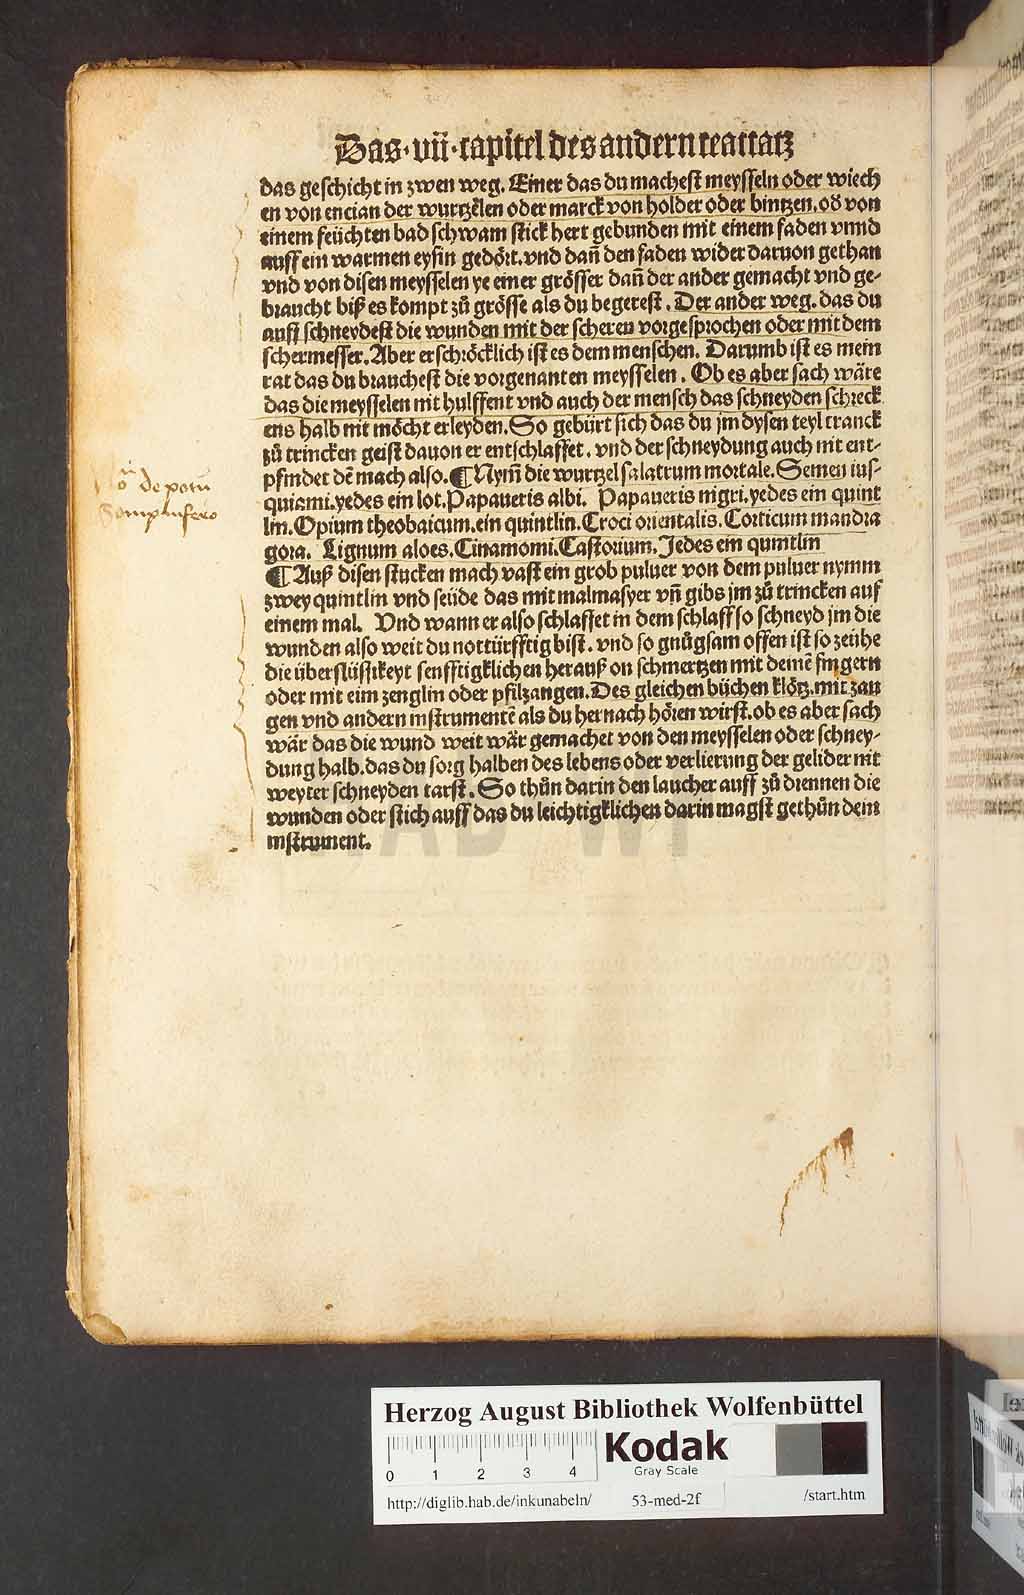 Das·vii·capitel des andern teattatz
das geschicht in zwen weg. Einer das du machest meysseln oder wiech
en von encian der wurtzelen oder marck von holder oder bintzen. od von
einem feüchten bad schwam stick hert gebunden mit einem faden vnnd
auff ein warmen eysin gedört. vnd dañ den faden wider daruon gethan
vnd von disen meysselen ye einer grösser dañ der ander gemacht vnd ge-
braucht biß es kompt zů grösse als du begerest. Der ander weg. das du
auff schneydest die wunden mit der scheren vorgesprochen oder mit dem
schermesser. Aber erschröcklich ist es dem menschen. Darumb ist es mein
rat das du brauchest die vorgenanten meysselen. Ob es aber sach wäre
das die meysselen nit hulffent vnd auch der mensch das schneyden schreck
ens halb nit möcht erleyden. So gebürt sich das du jm dysen teyl tranck
zů trincken geist dauon er entschlaffet. vnd der schneydung auch nit ent-
pfindet dē mach also. ¶ Nym̄ die wurtzel salatrum mortale. Semen ius-
quiami. yedes ein lot. Papaueris albi. Papaueris nigri. yedes ein quint
lin. Opium theobaicum. ein quintlin. Croci orientalis. Corticum mandra
gora. Lignum aloes. Cinamomi. Castorium. Jedes ein quintlin
¶ Auß disen stucken mach vast ein grob puluer von dem puluer nymm
zwey quintlin vnd seüde das mit malmasyer vñ gibs jm zů trincken auf
einem mal. Vnd wann er also schlaffet in dem schlaff so schneyd jm die
wunden also weit du nottürfftig bist. vnd so gnůgsam offen ist so zeühe
die überflüssikeyt senfftigklichen herauß on schmertzen mit deinē fingern
oder mit eim zenglin oder pfilzangen. Des gleichen büchen klötz. mit zan
gen vnd andern instrumentē als du hernach hören wirst. ob es aber sach
wär das die wund weit wär gemachet von den meysselen oder schney-
dung halb. das du sorg halben des lebens oder verlierung der gelider nit
weyter schneyden tarst. So thůn darin den laucher auff zů drennen die
wunden oder stich auff das du leichtigklichen darin magst gethůn dem
instrument.
de potu
Sompnifero
HAB WF
Herzog August Bibliothek Wolfenbüttel
0 1 2 3 4
Kodak
Gray Scale
http://diglib.hab.de/inkunabeln/ 53-med-2f /start.htm